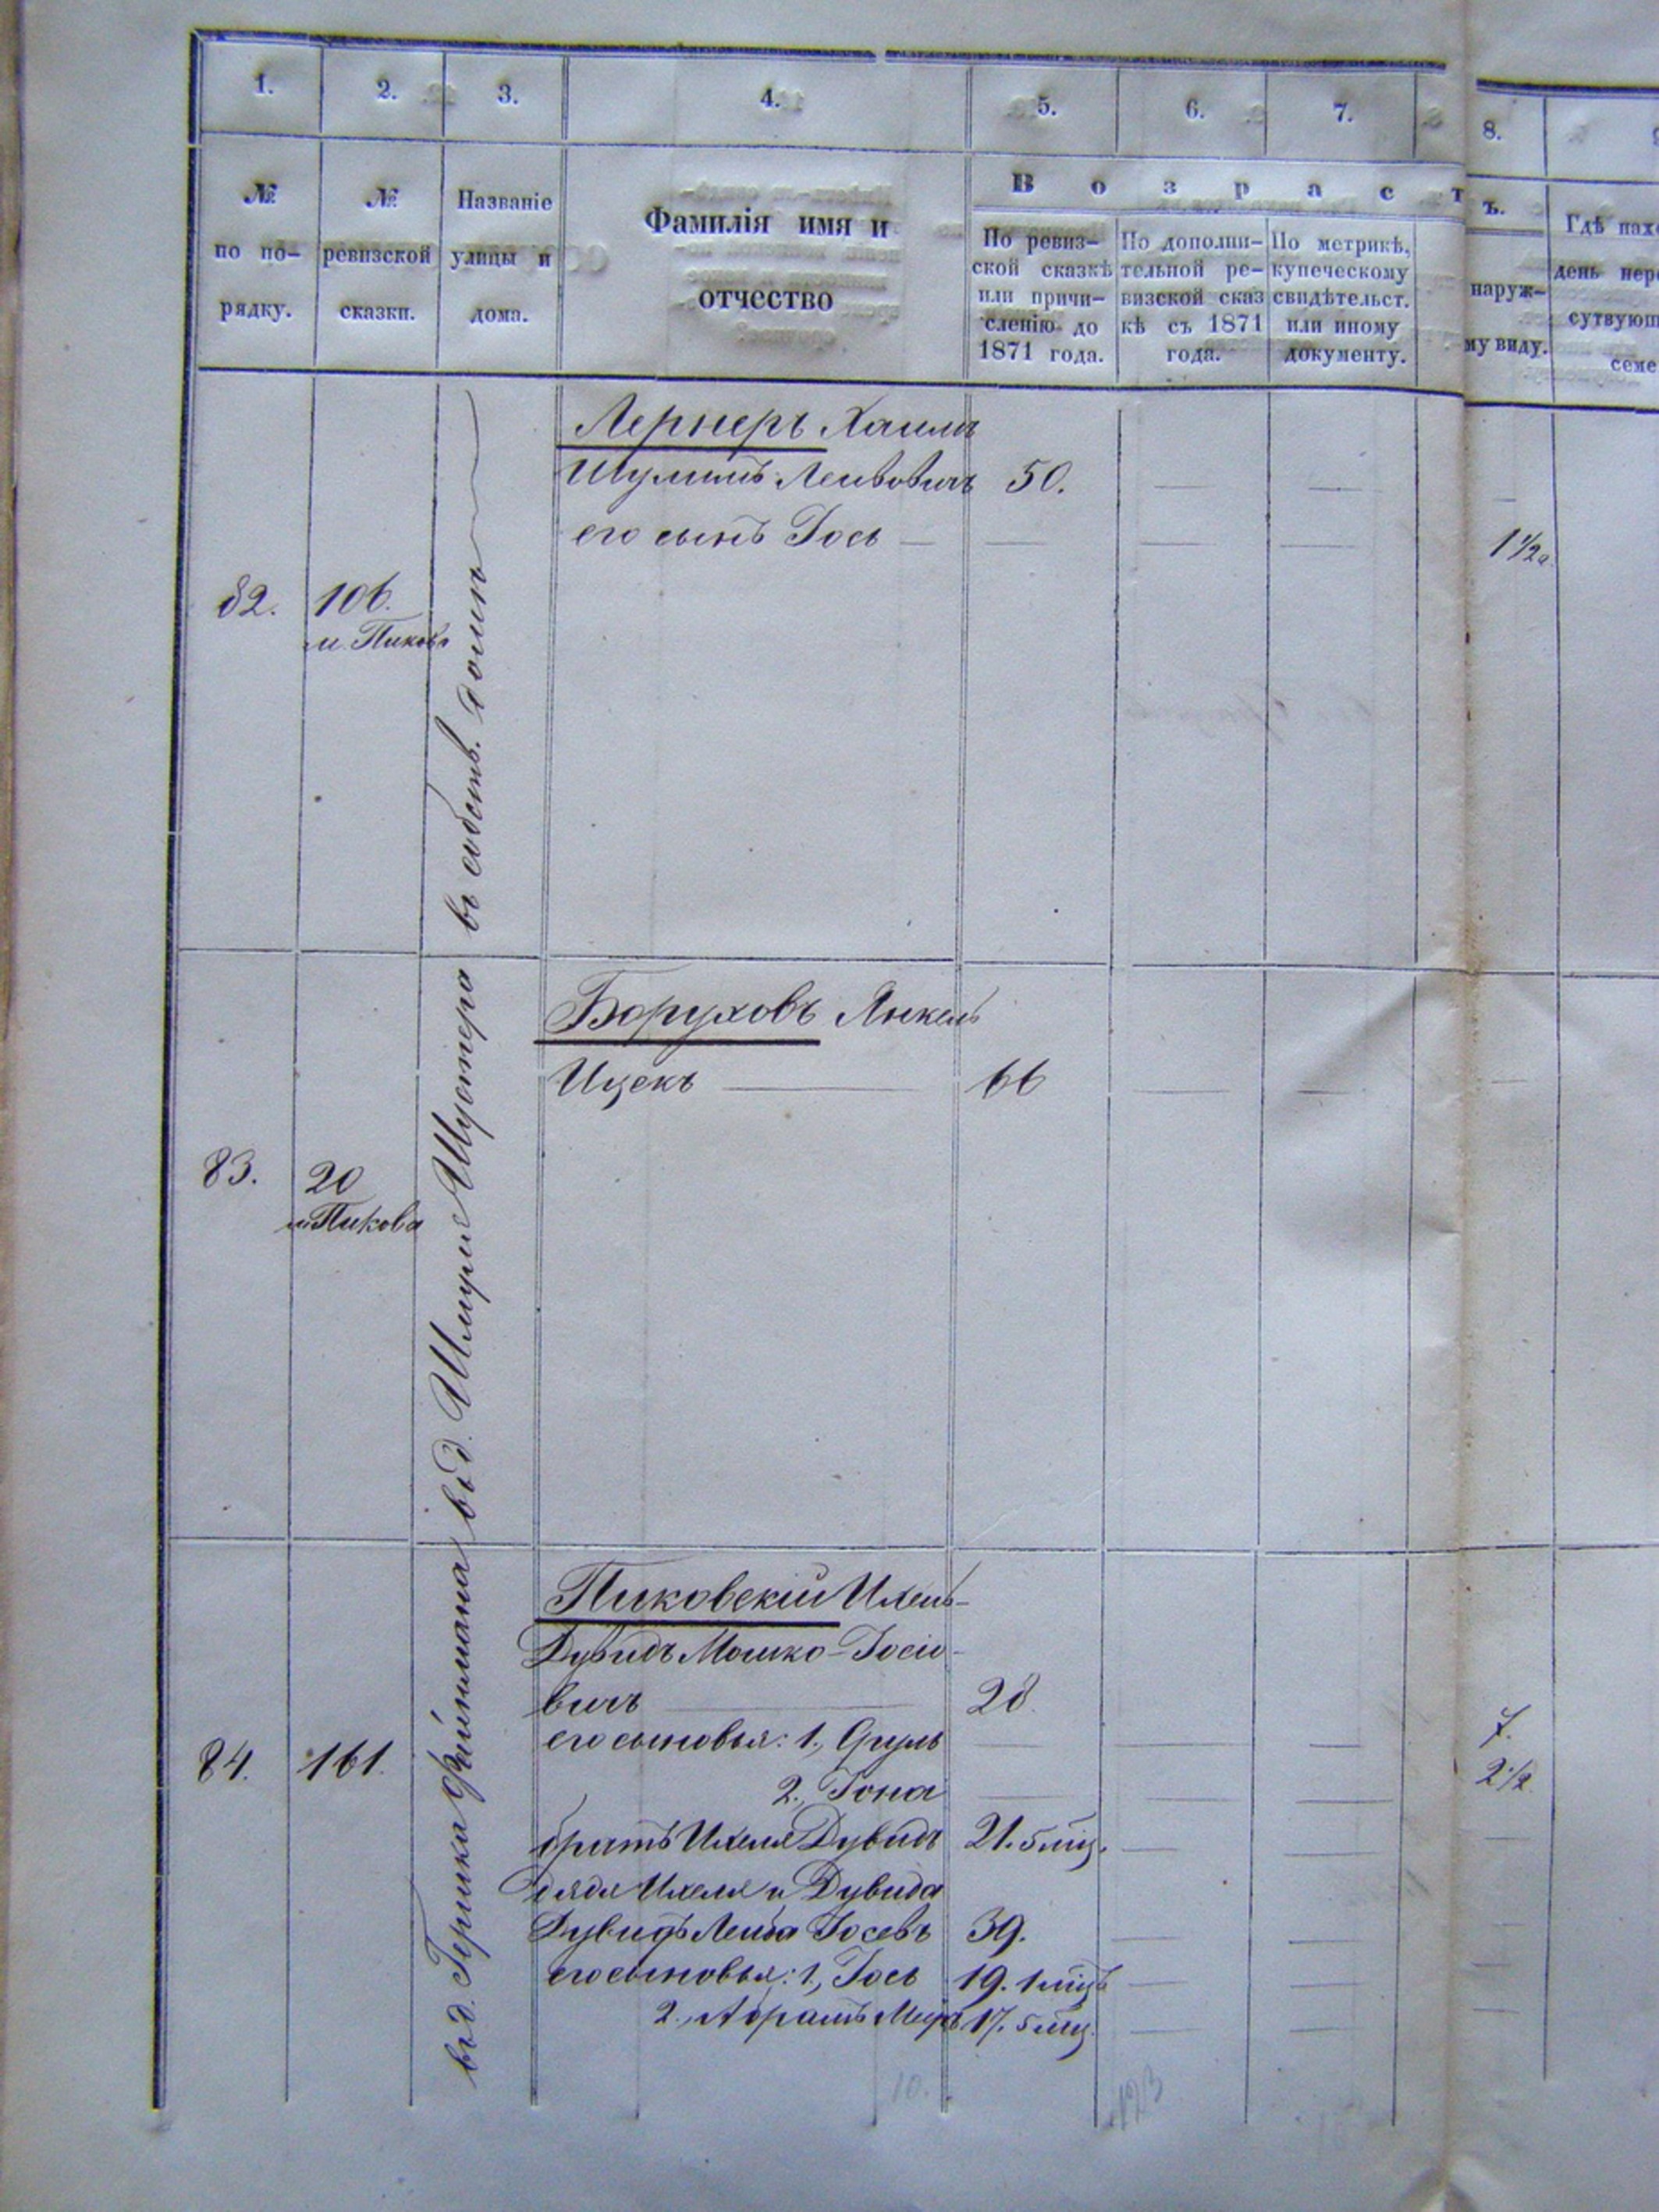 1. 2. 3. 4. 5. 6. 7. 8.
№ по порядку.
№ ревизской сказки.
Названіе улицы и дома.
Фамилія имя и отчество
Возраст
ъ.
По ревизской сказкѣ или причисленію до 1871 года.
По дополнительной ревизской сказкѣ съ 1871 года.
По метрикѣ, купеческому свидѣтельст. или иному документу.
наруж-
му виду.
Гдѣ нахо
день пер
сутвующ
семе
Лернеръ Хаимъ
Шулимъ Лейбовичъ 50.
его сынъ Іось — 1 1/2
82. 106.
м. Пикова
въ собств. домѣ
Боруховъ Янкель
Ицекъ 66
83. 20
м. Пикова
въ д. Шмуля Шустера
Пиковскій Ихель-
Дувидъ Мошко-Іосіо-
вичъ 28
его сыновья: 1., Сруль 7.
2., Іона 2 1/2
84. 161.
братъ Ихеля Дувидъ 21. 5 мѣц.
дядя Ихеля и Дувида
Дувидъ Лейба Іосевъ 39.
его сыновья: 1., Іось 19. 1 мѣц.
2., Абрамъ Мееръ 17. 5 мѣц.
въ д. Гершка Файнмана
10.
123